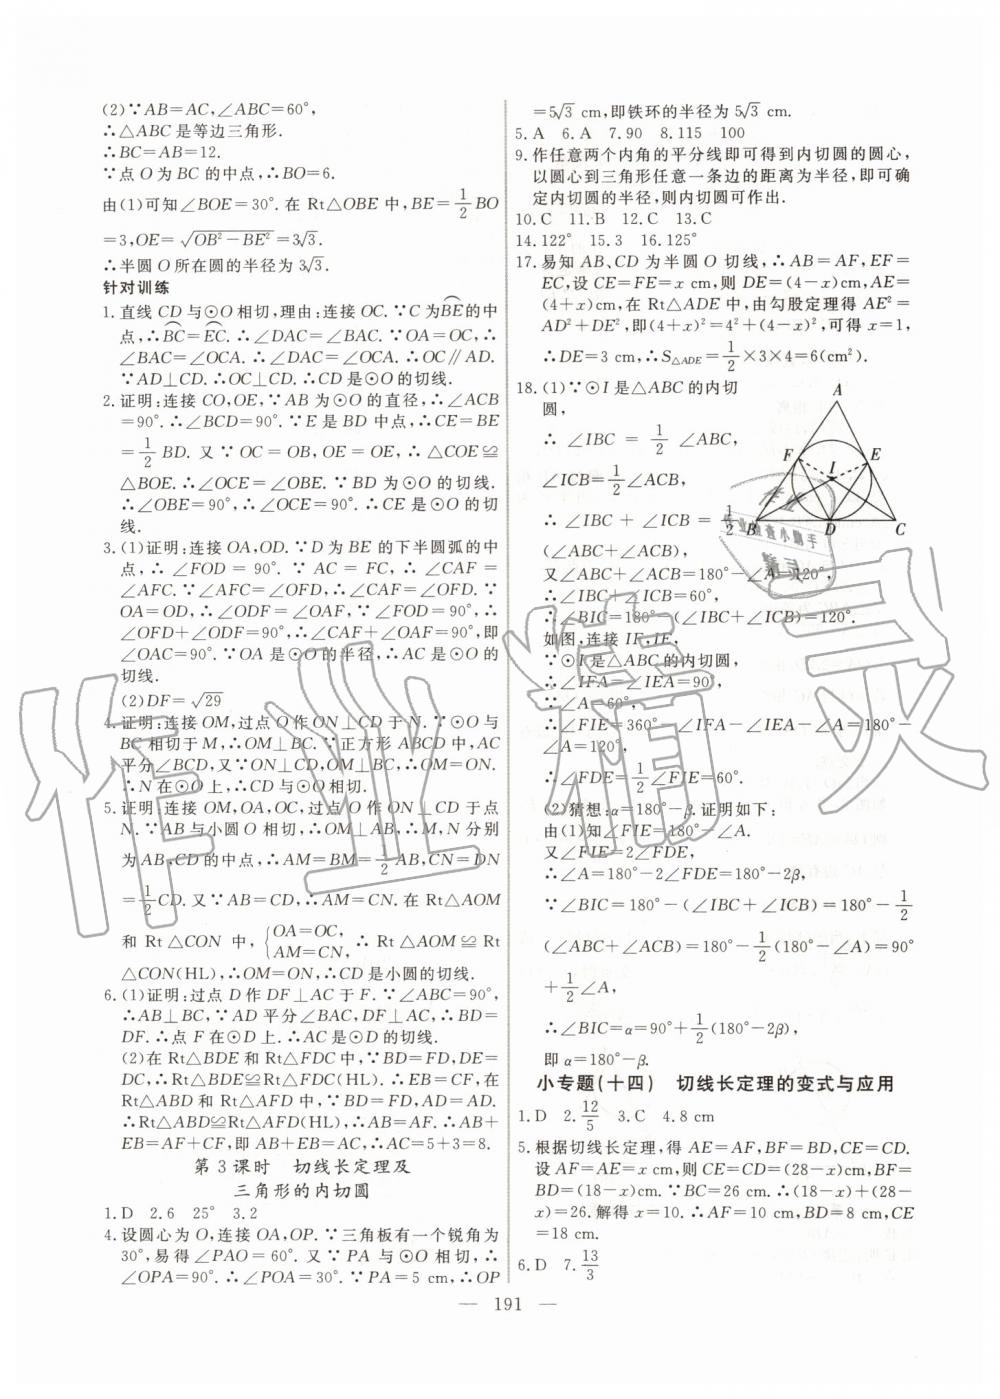 (2)∵AB=AC,∠ABC=60°,
∴△ABC是等边三角形.
∴BC=AB=12.
∵点O为BC的中点,∴BO=6.
由(1)可知∠BOE=30°.在Rt△OBE中,BE=1/2BO
=3,OE=√(OB²-BE²)=3√3.
∴半圆O所在圆的半径为3√3.
针对训练
1.直线CD与⊙O相切,理由:连接OC.∵C为⌒BE的中
点,∴⌒BC=⌒EC.∴∠DAC=∠BAC.∵OA=OC,∴
∠BAC=∠OCA.∴∠DAC=∠OCA.∴OC∥AD.
∵AD⊥CD.∴OC⊥CD.∴CD是⊙O的切线.
2.证明:连接CO,OE,∵AB为⊙O的直径,∴∠ACB
=90°.∴∠BCD=90°.∵E是BD中点,∴CE=BE
=1/2BD.又∵OC=OB,OE=OE,∴△COE≌
△BOE.∴∠OCE=∠OBE.∵BD为⊙O的切线.
∴∠OBE=90°,∴∠OCE=90°.∴CE是⊙O的切
线.
3.(1)证明:连接OA,OD.∵D为BE的下半圆弧的中
点,∴∠FOD=90°.∵AC=FC,∴∠CAF=
∠AFC.∵∠AFC=∠OFD,∴∠CAF=∠OFD.∵
OA=OD,∴∠ODF=∠OAF,∵∠FOD=90°.∴
∠OFD+∠ODF=90°,∴∠CAF+∠OAF=90°,即
∠OAC=90°.∵OA是⊙O的半径,∴AC是⊙O的
切线.
(2)DF=√29
4.证明:连接OM,过点O作ON⊥CD于N.∵⊙O与
BC相切于M,∴OM⊥BC.∵正方形ABCD中,AC
平分∠BCD,又∵ON⊥CD,OM⊥BC,∴OM=ON.
∴N在⊙O上,∴CD与⊙O相切.
5.证明:连接OM,OA,OC,过点O作ON⊥CD于点
N.∵AB与小圆O相切,∴OM⊥AB,∴M,N分别
为AB,CD的中点,∴AM=BM=1/2AB,CN=DN
=1/2CD.又∵AB=CD,∴AM=CN.在Rt△AOM
和Rt△CON中,{OA=OC, AM=CN, ∴Rt△AOM≌Rt
△CON(HL),∴OM=ON,∴CD是小圆的切线.
6.(1)证明:过点D作DF⊥AC于F.∵∠ABC=90°,
∴AB⊥BC,∵AD平分∠BAC,DF⊥AC,∴BD=
DF.∴点F在⊙D上.∴AC是⊙D的切线.
(2)在Rt△BDE和Rt△FDC中,∵BD=FD,DE=
DC,∴Rt△BDE≌Rt△FDC(HL).∴EB=CF.在
Rt△ABD和Rt△AFD中,∵BD=DF,AD=AD.
∴Rt△ABD≌Rt△AFD(HL).∴AB=AF.∴AB+
EB=AF+CF,即AB+EB=AC,∴AC=5+3=8.
第3课时 切线长定理及
三角形的内切圆
1.D 2.6 25° 3.2
4.设圆心为O,连接OA,OP.∵三角板有一个锐角为
30°,易得∠PAO=60°.又∵PA与⊙O相切,∴
∠OPA=90°.∴∠POA=30°.∵PA=5 cm,∴OP
=5√3 cm,即铁环的半径为5√3 cm.
5.A 6.A 7.90 8.115 100
9.作任意两个内角的平分线即可得到内切圆的圆心,
以圆心到三角形任意一条边的距离为半径,即可确
定内切圆的半径,则内切圆可作出.
10.C 11.B 12.C 13.C
14.122° 15.3 16.125°
17.易知AB、CD为半圆O切线,∴AB=AF,EF=
EC,设CE=FE=x cm,则DE=(4-x)cm,AE=
(4+x)cm,在Rt△ADE中,由勾股定理得AE²=
AD²+DE²,即(4+x)²=4²+(4-x)²,可得x=1,
∴DE=3 cm,∴S△ADE=1/2×3×4=6(cm²).
18.(1)∵⊙I是△ABC的内切
圆,
∴∠IBC=1/2∠ABC,
∠ICB=1/2∠ACB,
∴∠IBC+∠ICB=1/2
(∠ABC+∠ACB)
又∠ABC+∠ACB=180°-∠A=120°,
∴∠IBC+∠ICB=60°,
∴∠BIC=180°-(∠IBC+∠ICB)=120°.
如图,连接IF,IE,
∵⊙I是△ABC的内切圆,
∴∠IFA=∠IEA=90°,
∵∠A=60°,
∴∠FIE=360°-∠IFA-∠IEA-∠A=180°-
∠A=120°,
∴∠FDE=1/2∠FIE=60°.
(2)猜想:α=180°-β.证明如下:
由(1)知∠FIE=180°-∠A.
又∠FIE=2∠FDE,
∴∠A=180°-2∠FDE=180°-2β,
∵∠BIC=180°-(∠IBC+∠ICB)=180°-1/2
(∠ABC+∠ACB)=180°-1/2(180°-∠A)=90°
+1/2∠A,
∴∠BIC=α=90°+1/2(180°-2β),
即α=180°-β.
A
F
E
I
B
D
C
小专题(十四) 切线长定理的变式与应用
1.D 2.12/5 3.C 4.8 cm
5.根据切线长定理,得AE=AF,BF=BD,CE=CD.
设AF=AE=x cm,则CE=CD=(28-x)cm,BF=
BD=(18-x)cm.∵BC=26 cm,∴(18-x)+(28-
x)=26.解得x=10.∴AF=10 cm,BD=8 cm,CE
=18 cm.
6.D 7.13/3
— 191 —
作业精灵